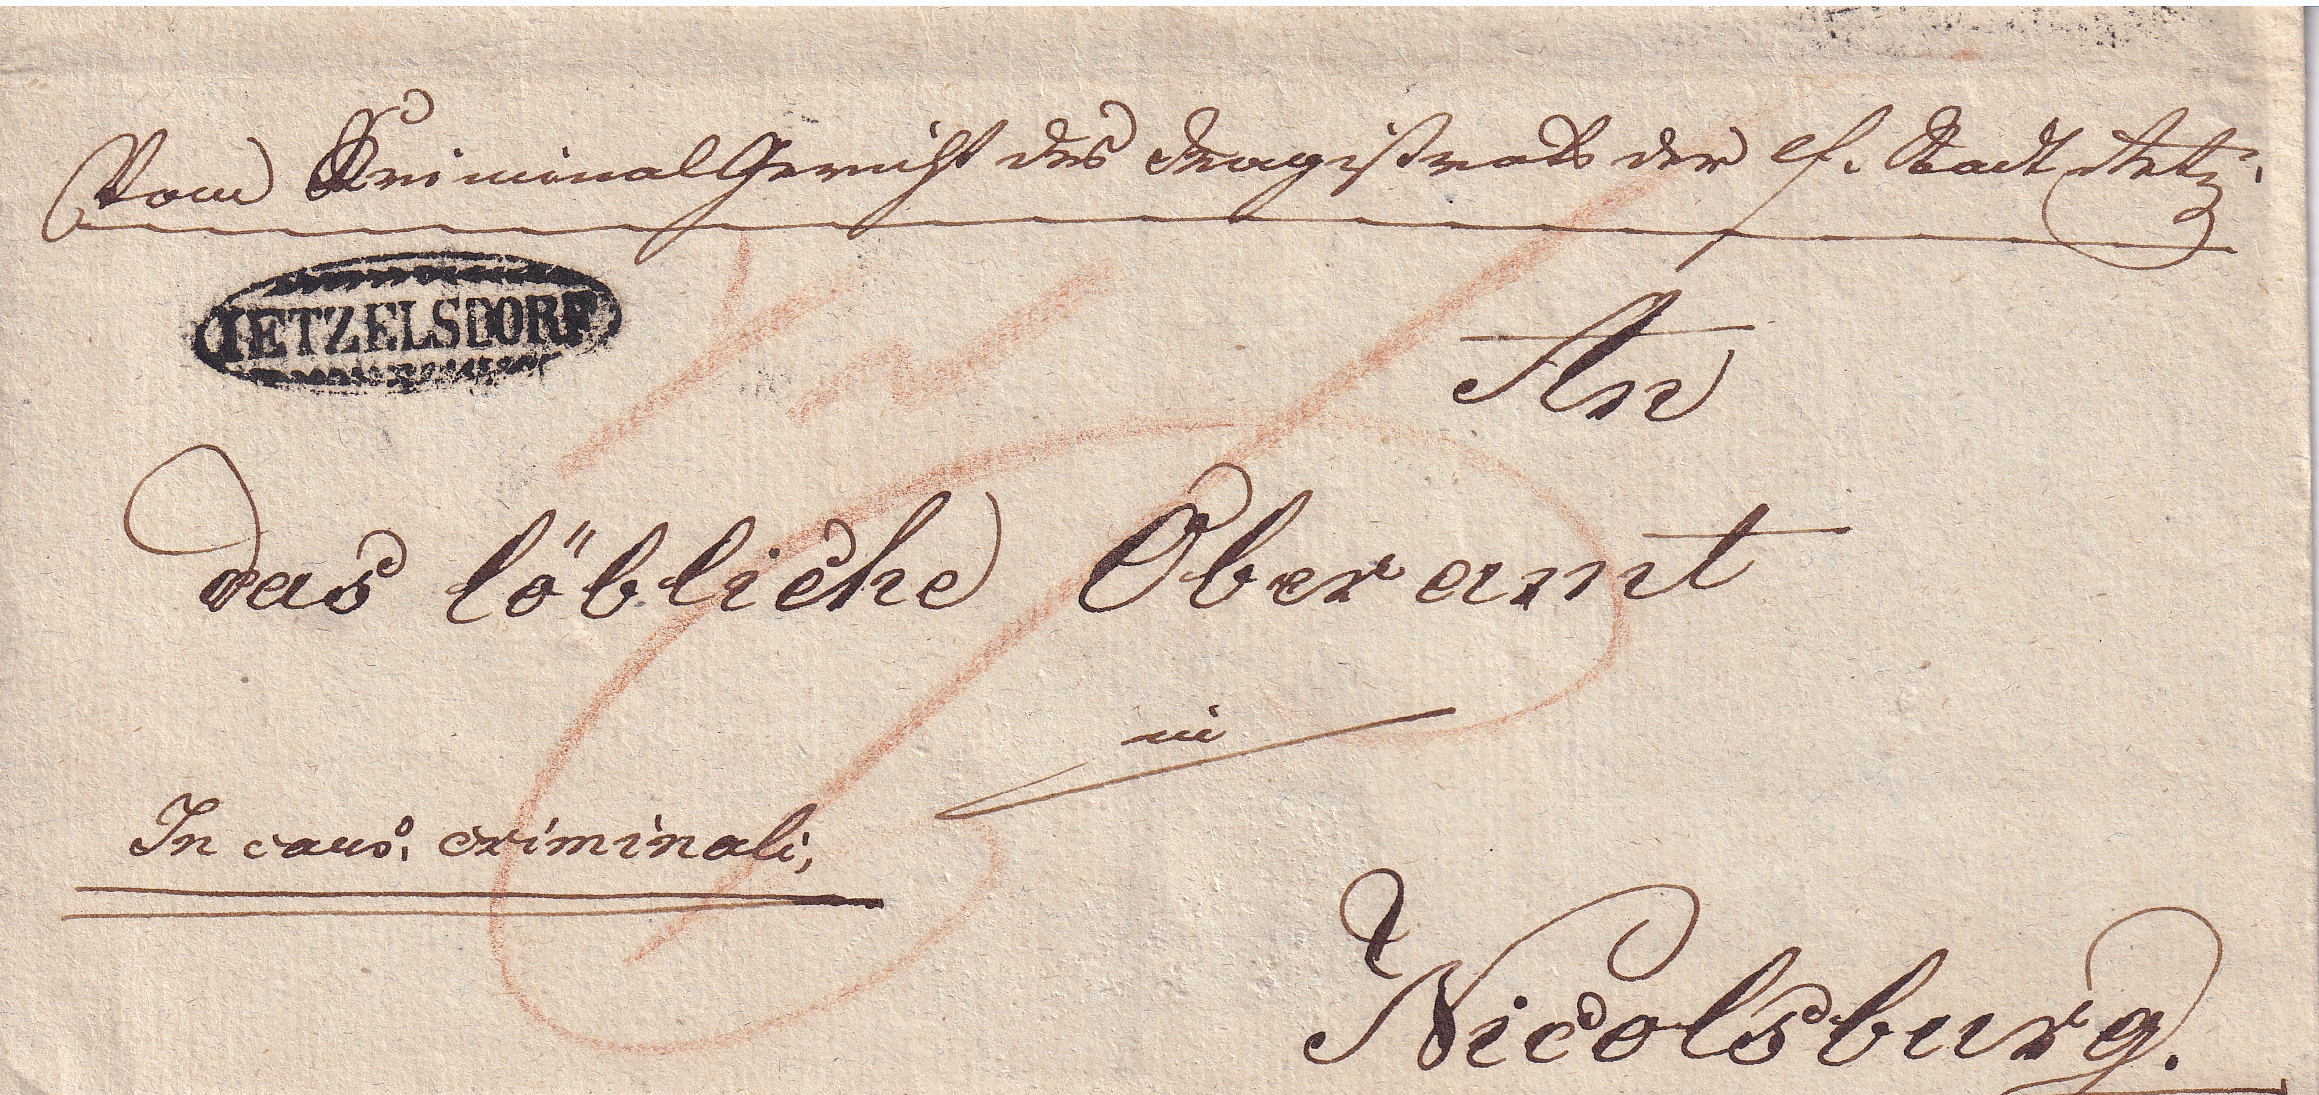 Vom Kriminal Gericht des Magistrats der lf. Stadt Retz.
JETZELSDORF
An
das löbliche Oberamt
in
In caus: criminali,
Nicolsburg.